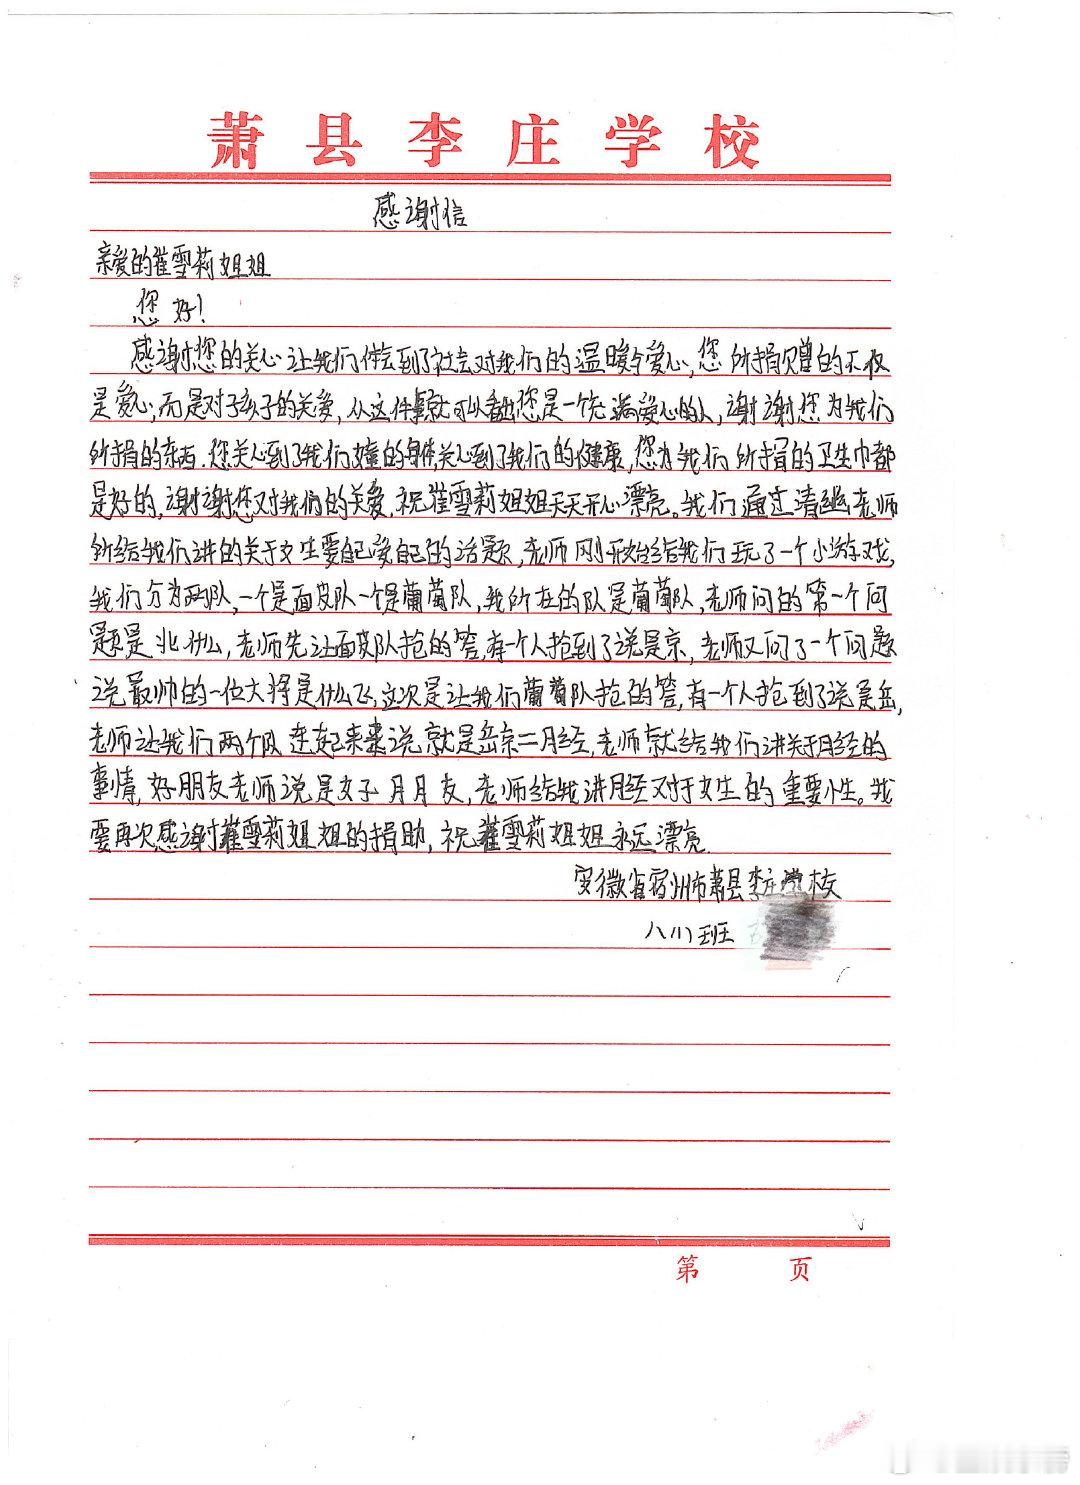 萧县李庄学校
感谢信
亲爱的崔雪莉姐姐
您好！
感谢您的关心让我们体会到了社会对我们的温暖与爱心,您所捐赠的不仅
是爱心,而是对孩子的关爱,从这件事就可以看出您是一个充满爱心的人,谢谢您为我们
所捐的东西.您关心到了我们女童的身体,关心到了我们的健康,您为我们所捐的卫生巾都
是好的,谢谢您对我们的关爱,祝崔雪莉姐姐天天开心漂亮。我们通过清幽老师
所给我们讲的关于女生要自己爱自己的话题,老师刚开始给我们玩了一个小游戏,
我们分为两队,一个是面皮队一个是葡萄队,我所在的队是葡萄队,老师问的第一个问
题是北什么,老师先让面皮队抢的答,有一个人抢到了说是京,老师又问了一个问题
说最帅的一位大将是什么飞,这次是让我们葡萄队抢的答,有一个人抢到了说是岳,
老师让我们两个队连起来说就是岳京二月经,老师就给我们讲关于月经的
事情,好朋友老师说是女子月月友,老师给我讲月经对于女生的重要性。我
要再次感谢崔雪莉姐姐的捐助,祝崔雪莉姐姐永远漂亮.
安徽省宿州市萧县李庄学校
八(1)班
第 页